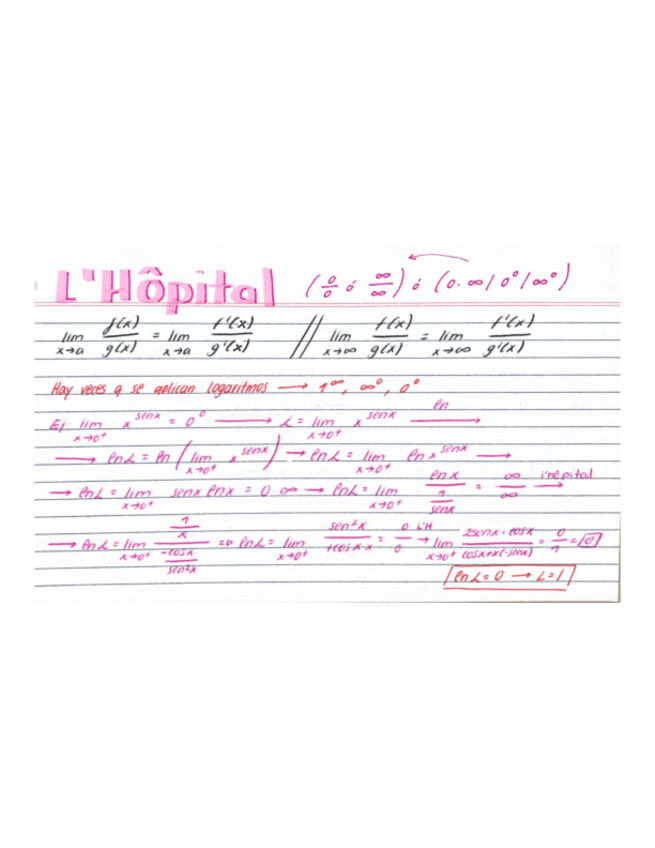 L'Hôpital (0/0 ó ∞/∞) ó (0·∞/0⁰/∞⁰)
lim x→a f(x)/g(x) = lim x→a f'(x)/g'(x) // lim x→∞ f(x)/g(x) = lim x→∞ f'(x)/g'(x)
Hay veces q se aplican logaritmos → 1^∞, ∞⁰, 0⁰
Ej: lim x→0⁺ x^senx = 0⁰ → L = lim x→0⁺ x^senx ln→
→ lnL = ln (lim x→0⁺ x^senx) → lnL = lim x→0⁺ ln x^senx →
→ lnL = lim x→0⁺ senx lnx = 0·∞ → lnL = lim x→0⁺ lnx/(1/senx) = ∞/∞
→ lnL = lim x→0⁺ (1/x)/(-cosx/sen²x) => lnL = lim x→0⁺ sen²x/+cosx·x = 0/0 L'H → lim x→0⁺ 2senx·cosx/cosx+x(-senx) = 0/1 = 0
lnL = 0 → L = 1